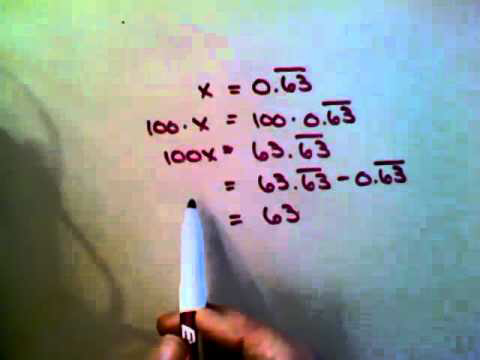 x = 0.6̅3̅
100·x = 100·0.6̅3̅
100x = 63.6̅3̅
= 63.6̅3̅ - 0.6̅3̅
= 63